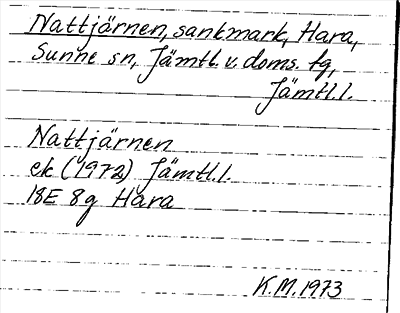 Nattjärnen, sankmark, Hara,
Sunne sn, Jämtl. v. doms. tg,
Jämtl.l.
Nattjärnen
ek (1972) Jämtl.l.
18E 8g Hara
K.M. 1973